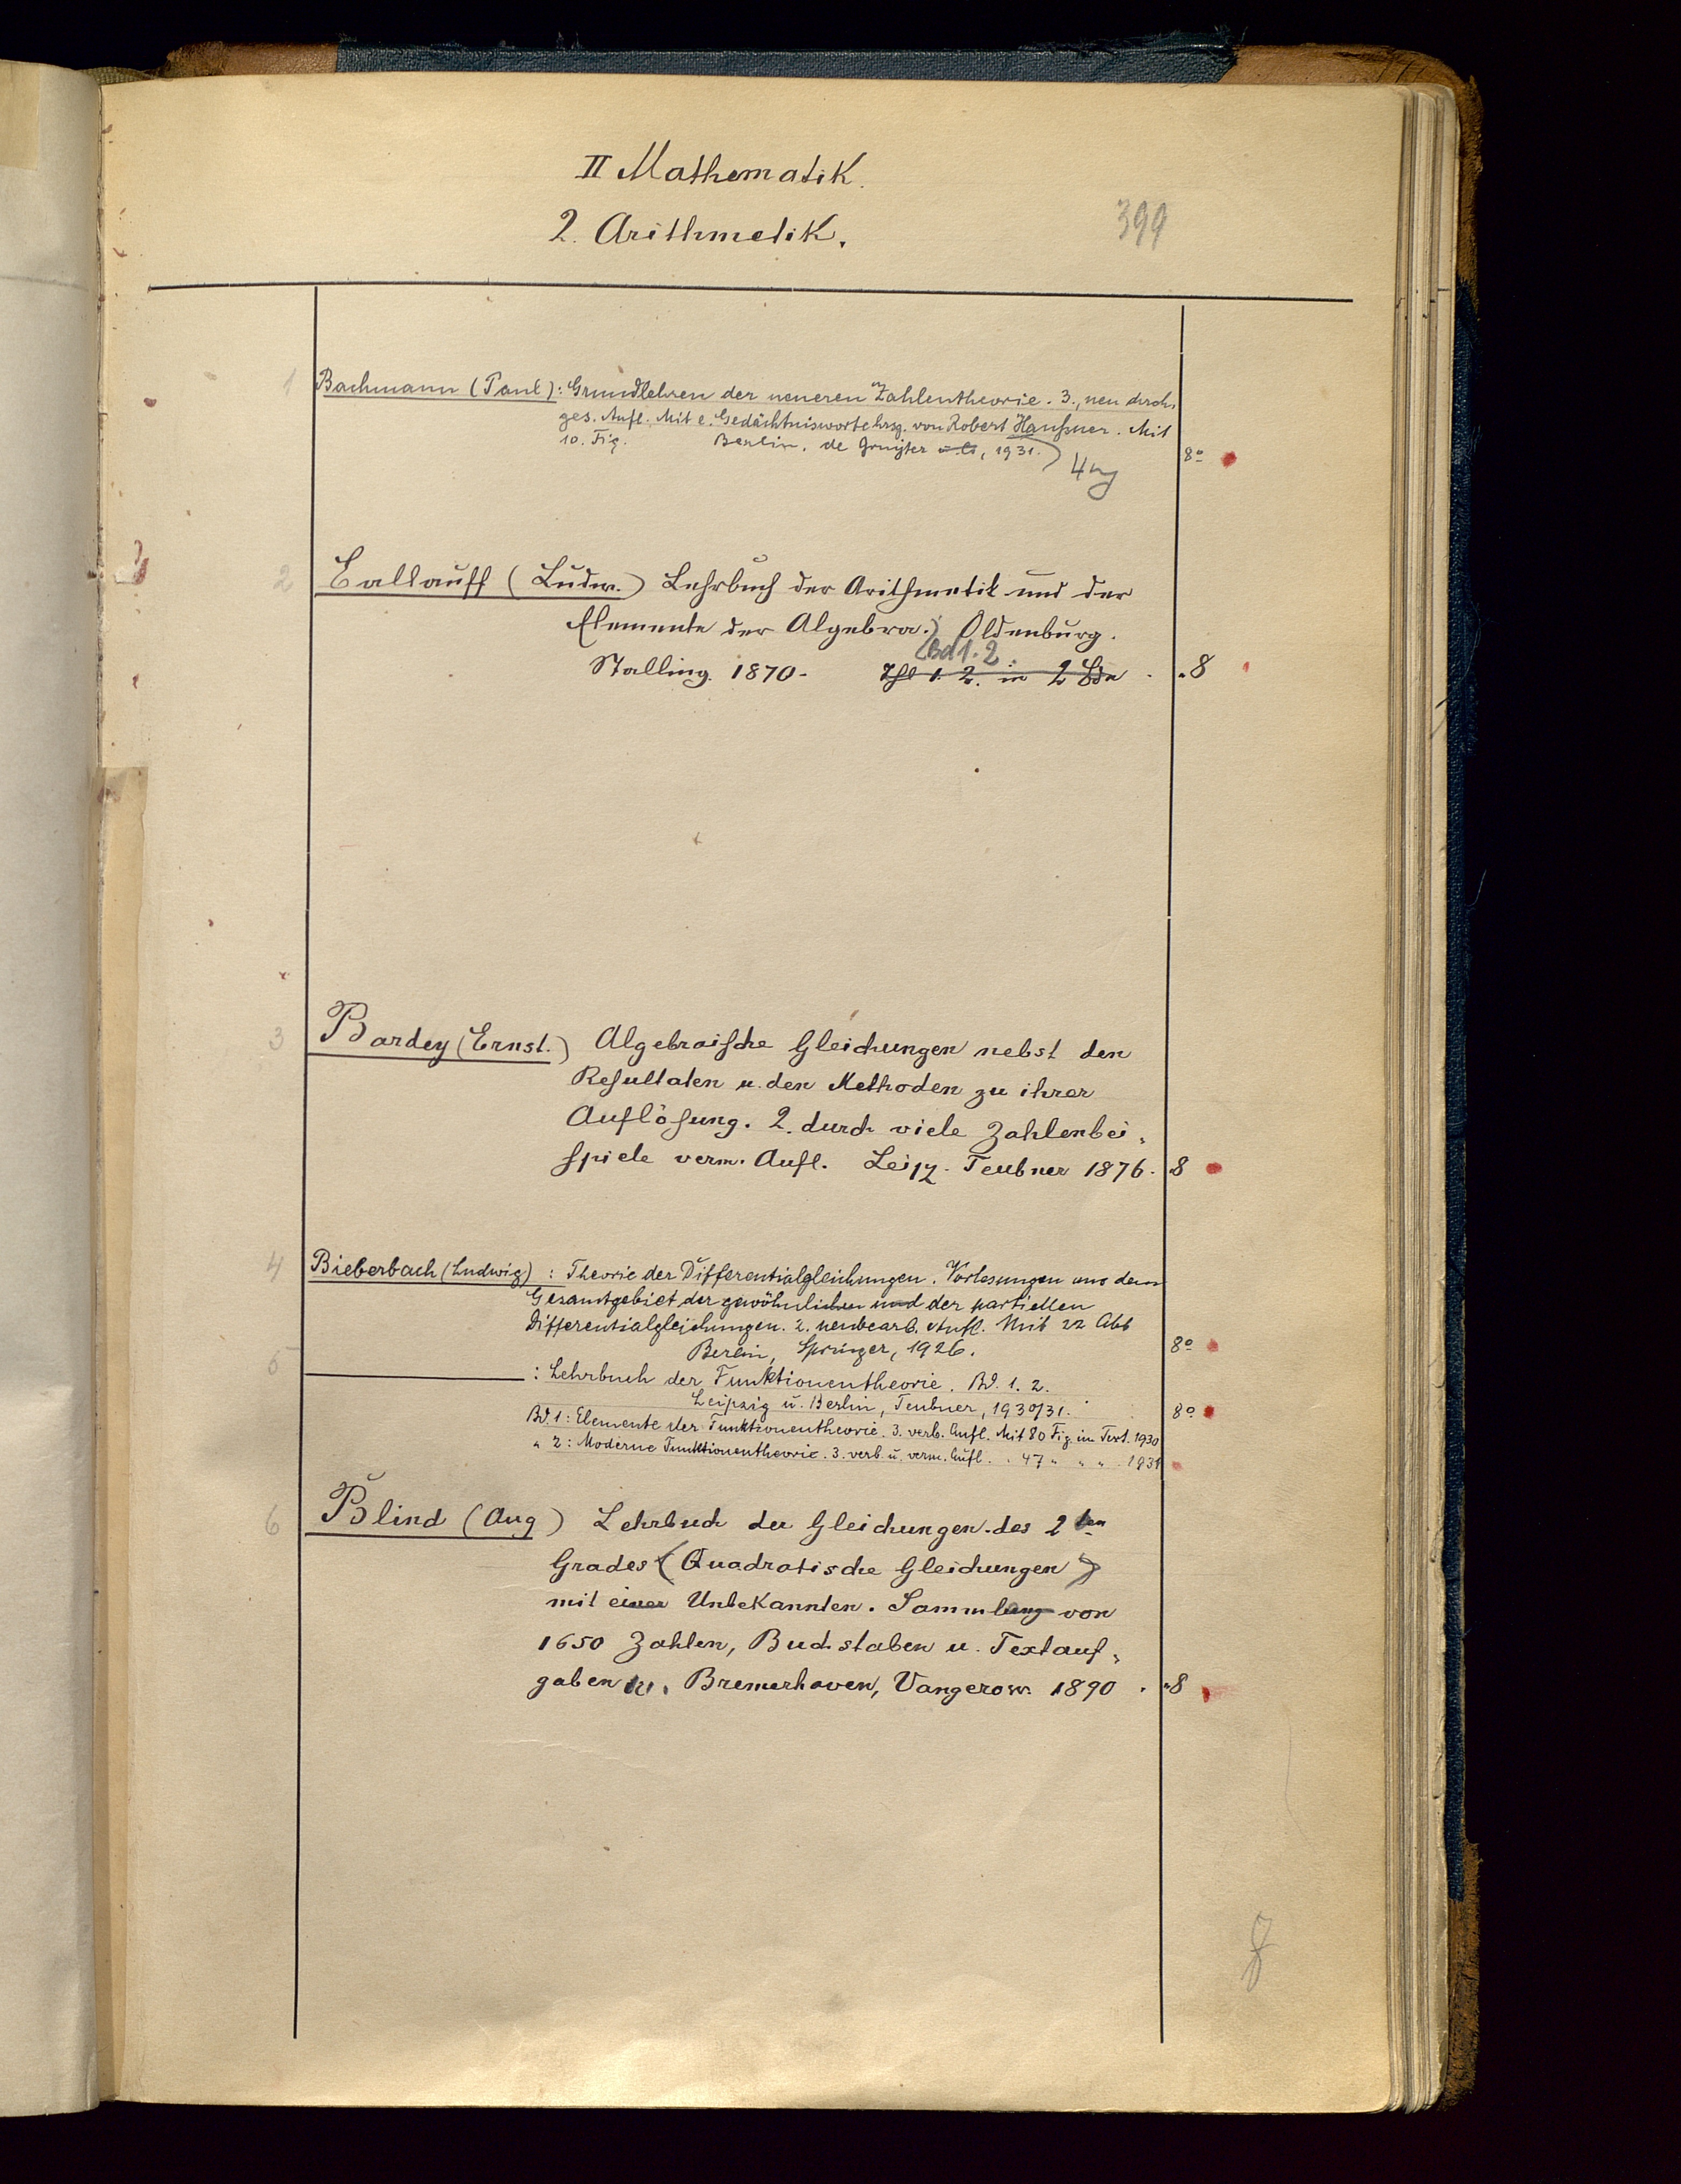 II Mathematik.
2. Arithmetik.
399
1
Bachmann (Paul): Grundlehren der neueren Zahlentheorie. 3., neu durch-
ges. Aufl. Mit e. Gedächtniswort hrsg. von Robert Haußner. Mit
10. Fig. Berlin, de Gruyter, 1931.
8°
2
Ballauff (Ludw.) Lehrbuch der Arithmetik und der
Elemente der Algebra. Oldenburg.
Bd 1. 2.
Stalling. 1870. Thl 1. 2. in 2 Bdn
„8
3
Bardey (Ernst.) Algebraische Gleichungen nebst den
Resultaten u. den Methoden zu ihrer
Auflösung. 2. durch viele Zahlenbei-
spiele verm. Aufl. Leipz. Teubner 1876.
8
4
Bieberbach (Ludwig) : Theorie der Differentialgleichungen. Vorlesungen aus dem
Gesamtgebiet der gewöhnlichen und der partiellen
Differentialgleichungen. 2. neubearb. Aufl. Mit 22 Abb
Berlin, Springer, 1926.
8°
5
: Lehrbuch der Funktionentheorie. Bd. 1. 2.
Leipzig u. Berlin, Teubner, 1930/31.
8°
Bd. 1: Elemente der Funktionentheorie. 3. verb. Aufl. Mit 80 Fig. im Text. 1930
„ 2: Moderne Funktionentheorie. 3. verb. u. verm. Aufl. „ 47 „ „ „ 1931
6
Blind (Aug) Lehrbuch der Gleichungen des 2ten
Grades (Quadratische Gleichungen)
mit einer Unbekannten. Sammlung von
1650 Zahlen, Buchstaben u. Textauf-
gaben Bremerhaven, Vangerow. 1890
„8